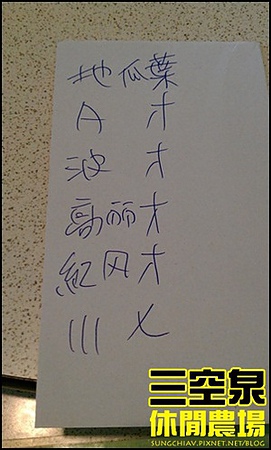 地瓜葉
A 才
波 才
高丽才
紅冈才
川 七
三空泉
休閒農場
SUNGCHIAV.PIXNET.NET/BLOG